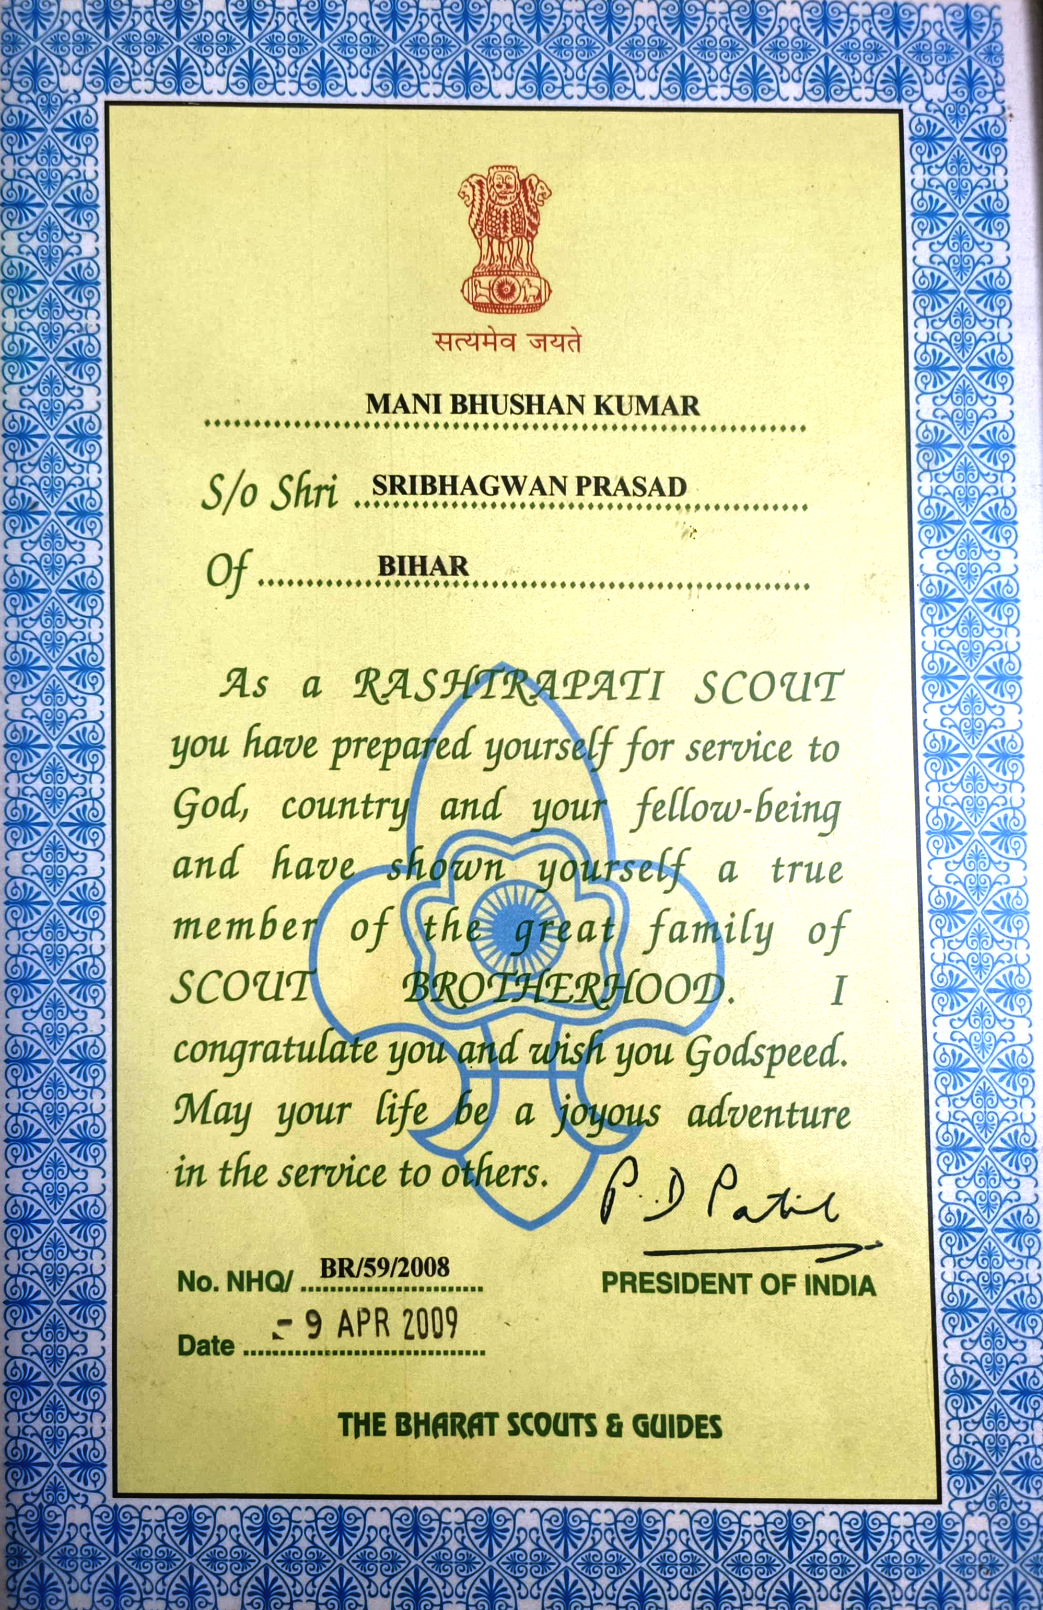 सत्यमेव जयते
MANI BHUSHAN KUMAR
S/o Shri SRIBHAGWAN PRASAD
Of BIHAR
As a RASHTRAPATI SCOUT
you have prepared yourself for service to
God, country and your fellow-being
and have shown yourself a true
member of the great family of
SCOUT BROTHERHOOD. I
congratulate you and wish you Godspeed.
May your life be a joyous adventure
in the service to others.
P. D Patil
No. NHQ/ BR/59/2008
PRESIDENT OF INDIA
Date - 9 APR 2009
THE BHARAT SCOUTS & GUIDES